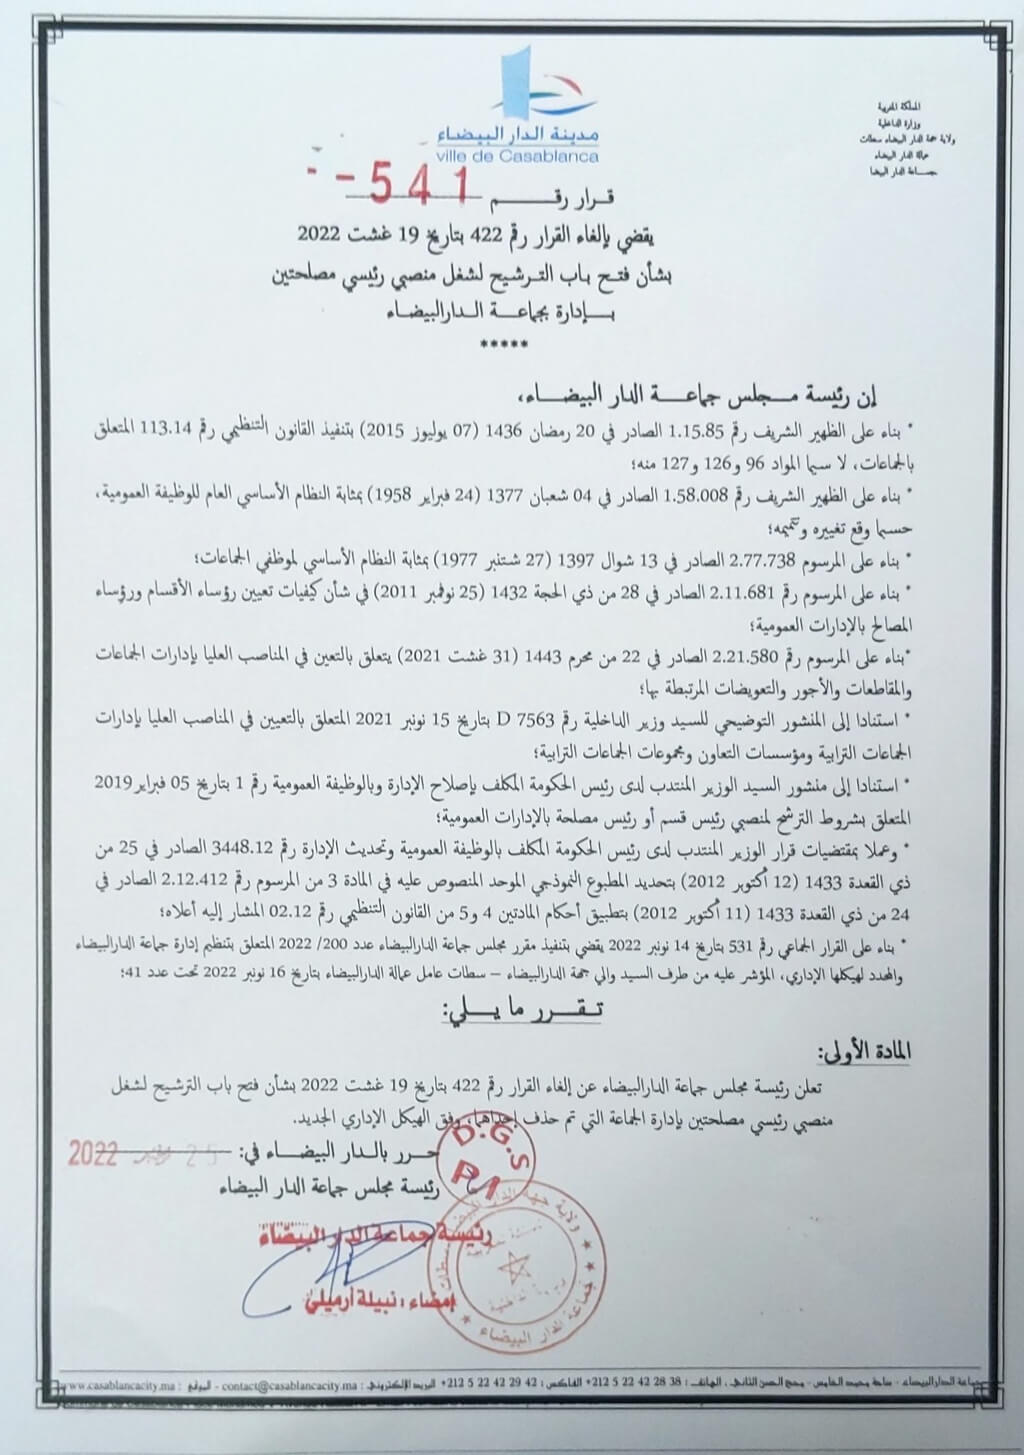 المملكة المغربية
وزارة الداخلية
ولاية جهة الدار البيضاء سطات
عمالة الدار البيضاء
جماعة الدار البيضا
مدينة الدار البيضاء
ville de Casablanca
قرار رقم 541 - -
يقضي بإلغاء القرار رقم 422 بتاريخ 19 غشت 2022
بشأن فتح باب الترشيح لشغل منصبي رئيسي مصلحتين
بإدارة بجماعة الدارالبيضاء
*****
إن رئيسة مجلس جماعة الدار البيضاء،
* بناء على الظهير الشريف رقم 1.15.85 الصادر في 20 رمضان 1436 (07 يوليوز 2015) بتنفيذ القانون التنظيمي رقم 113.14 المتعلق
بالجماعات، لا سيما المواد 96 و126 و127 منه؛
* بناء على الظهير الشريف رقم 1.58.008 الصادر في 04 شعبان 1377 (24 فبراير 1958) بمثابة النظام الأساسي العام للوظيفة العمومية،
حسبما وقع تغييره وتتميمه؛
* بناء على المرسوم 2.77.738 الصادر في 13 شوال 1397 (27 شتنبر 1977) بمثابة النظام الأساسي لموظفي الجماعات؛
* بناء على المرسوم رقم 2.11.681 الصادر في 28 من ذي الحجة 1432 (25 نوفمبر 2011) في شأن كيفيات تعيين رؤساء الأقسام ورؤساء
المصالح بالإدارات العمومية؛
*بناء على المرسوم رقم 2.21.580 الصادر في 22 من محرم 1443 (31 غشت 2021) يتعلق بالتعين في المناصب العليا بإدارات الجماعات
والمقاطعات والأجور والتعويضات المرتبطة بها؛
* استنادا إلى المنشور التوضيحي للسيد وزير الداخلية رقم D 7563 بتاريخ 15 نونبر 2021 المتعلق بالتعيين في المناصب العليا بإدارات
الجماعات الترابية ومؤسسات التعاون ومجموعات الجماعات الترابية؛
* استنادا إلى منشور السيد الوزير المنتدب لدى رئيس الحكومة المكلف بإصلاح الإدارة وبالوظيفة العمومية رقم 1 بتاريخ 05 فبراير 2019
المتعلق بشروط الترشح لمنصبي رئيس قسم أو رئيس مصلحة بالإدارات العمومية؛
* وعملا بمقتضيات قرار الوزير المنتدب لدى رئيس الحكومة المكلف بالوظيفة العمومية وتحديث الإدارة رقم 3448.12 الصادر في 25 من
ذي القعدة 1433 (12 أكتوبر 2012) بتحديد المطبوع النموذجي الموحد المنصوص عليه في المادة 3 من المرسوم رقم 2.12.412 الصادر في
24 من ذي القعدة 1433 (11 أكتوبر 2012) بتطبيق أحكام المادتين 4 و5 من القانون التنظيمي رقم 02.12 المشار إليه أعلاه؛
* بناء على القرار الجماعي رقم 531 بتاريخ 14 نونبر 2022 يقضي بتنفيذ مقرر مجلس جماعة الدارالبيضاء عدد 200/ 2022 المتعلق بتنظيم إدارة جماعة الدارالبيضاء
والمحدد لهيكلها الإداري، المؤشر عليه من طرف السيد والي جهة الدارالبيضاء – سطات عامل عمالة الدارالبيضاء بتاريخ 16 نونبر 2022 تحت عدد 41؛
تقرر ما يلي:
المادة الأولى:
تعلن رئيسة مجلس جماعة الدارالبيضاء عن إلغاء القرار رقم 422 بتاريخ 19 غشت 2022 بشأن فتح باب الترشيح لشغل
منصبي رئيسي مصلحتين بإدارة الجماعة التي تم حذف إحداهما، وفق الهيكل الإداري الجديد.
حرر بالدار البيضاء في: 25 نونبر 2022
رئيسة مجلس جماعة الدار البيضاء
D.G.S
P1
رئيسة جماعة الدار البيضاء
إمضاء : نبيلة ارميلي
ولاية جهة الدار البيضاء سطات ★ جماعة الدار البيضاء ★
جماعة الدارالبيضاء - ساحة محمد الخامس - محج الحسن الثاني. الهاتف : 38 28 42 22 5 212+ الفاكس : 42 29 42 22 5 212+ البريد الإلكتروني : contact@casablancacity.ma - الموقع : www.casablancacity.ma